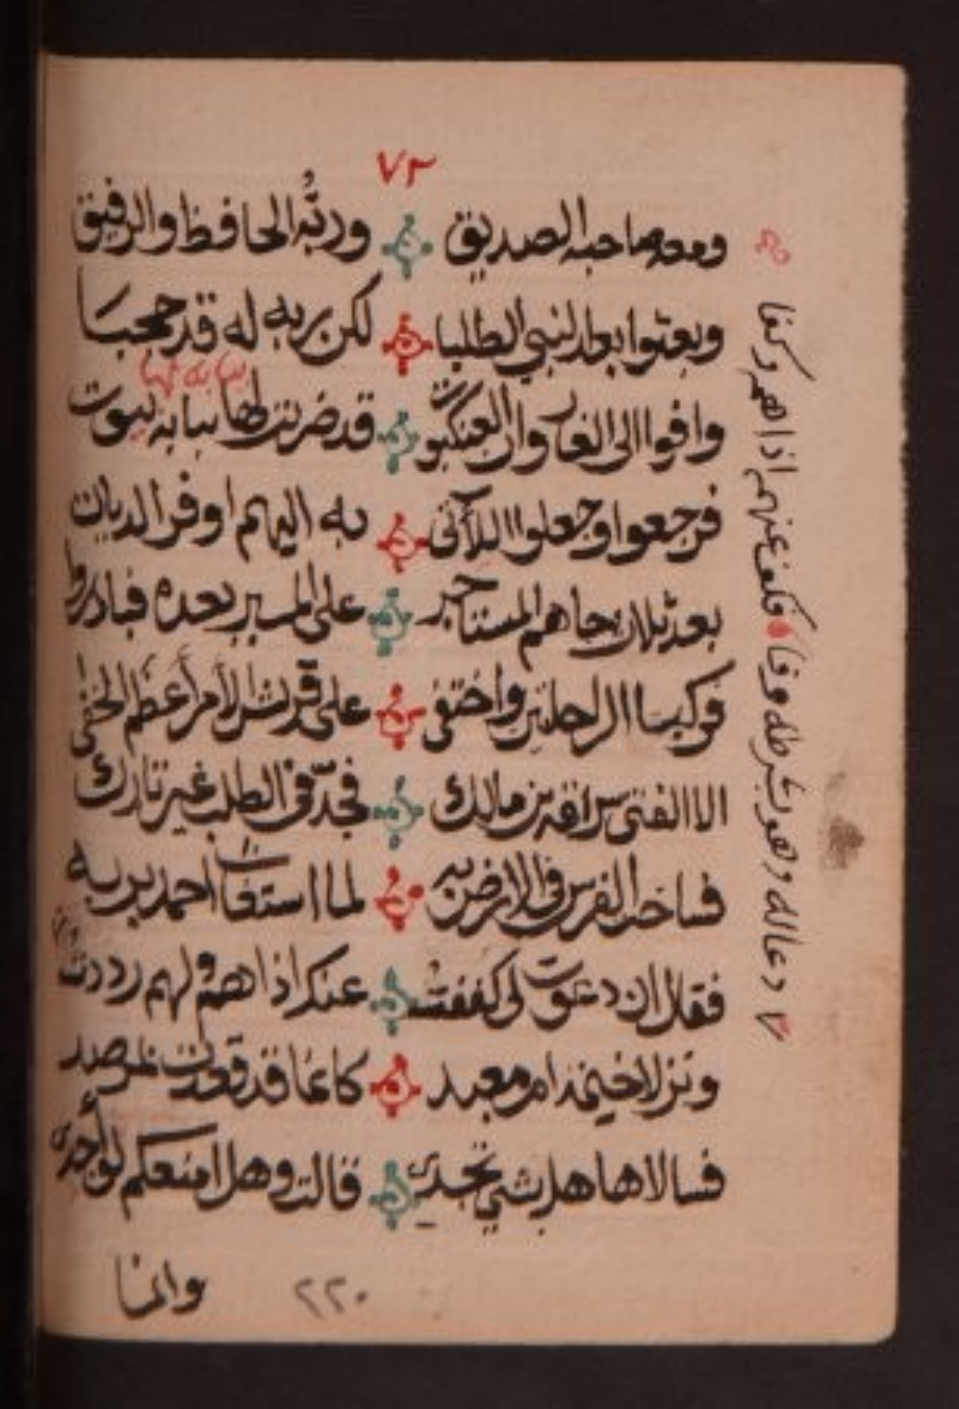 ٧٢
ومعه صاحبه الصديق وربُّه الحافظ والرفيق
وبعثوا بعد النبي الطلبا لكن بربه له قد حجبا
وافوا الى الغار وان العنكبوت قد ضربت لها ببابه بيوت
فرجعوا وجعلوا به اليهم اوفر الديات
بعد ثلاث جاهم المستاجر على المسير بعده فبادروا
فركبا الراحلتين واختفى على قريش الأمر أعظم الخفى
الا الفتى سراقة بن مالك فجدّ في الطلب غير تارك
فساخت الفرس في الارض به لما استغاث احمد بربه
فقال ان دعوت لي كففت عنكم اذاهم ولهم رددت
ونزلا خيمة ام معبد كانما قد قعدت بمرصد
فسالاها هل بشي تجدي قالت وهل امنعكم لو أجدى
وانما
٢٢٠
دعا له وهو بشرطه وفا
فكف عنهم اذاهم وكفا